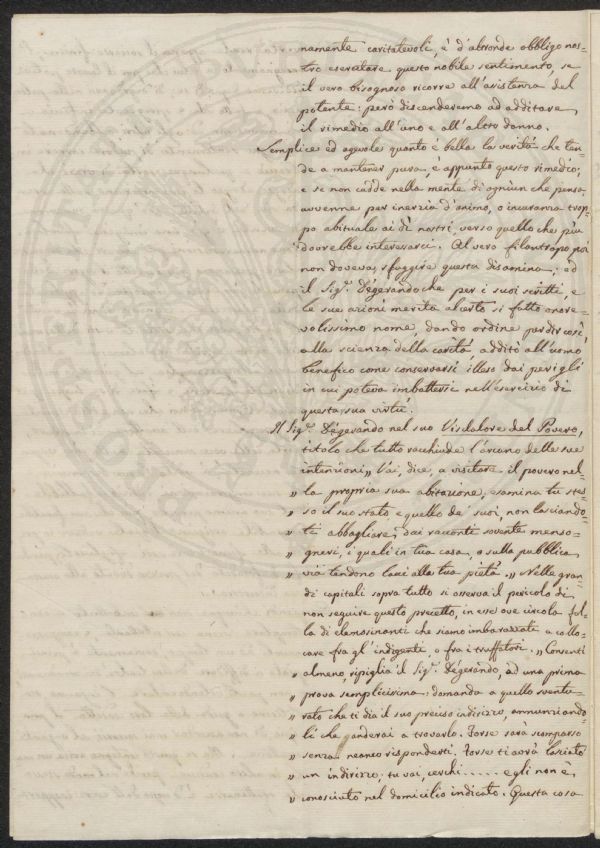 namente caritatevoli, è d'altronde obbligo nos=
tro esercitare questo nobile sentimento, se
il vero bisognoso ricorre all'asistenza del
potente: però discenderemo ad additare
il rimedio all'uno e all'altro danno.
Semplice ed agevole quanto è bella la verità che ten=
de a mantener pura, è appunto questo rimedio;
e se non cadde nella mente di ogniun che pensa
avvenne per inerzia d'animo, o incuranza trop=
po abituale ai dì nostri, verso quello che più
dovrebbe interessarci. Al vero filantropo poi
non doveva sfuggire questa disamina; ed
il Sigr. Dégerando che per i suoi scritti, e
le sue azioni merita al certo si fatto onore=
volissimo nome, dando ordine per dir così,
alla scienza della carità, additò all'uomo
benefico come conservarsi illeso dai perigli
in cui poteva imbattersi nell'esercizio di
questa sua virtù.
Il Sigr. Dégerando nel suo Visitatore del Povero,
titolo che tutto racchiude l'arcano delle sue
intenzioni „ Vai, dice, a visitare il povero nel=
„ la propria sua abitazione, esamina tu stes=
„ so il suo stato e quello de' suoi, non lasciando=
„ ti abbagliare dai racconti sovente menso=
„ gneri, i quali in tua casa, o sulla pubblica
„ via tendono lacci alla tua pietà. „ Nelle gran=
di capitali sopra tutto si osserva il pericolo di
non seguire questo precetto, in esse ove circola fol=
la di elemosinanti che siamo imbarazzati a collo=
care fra gl'indigenti, o fra i truffatori. „ Consenti
almeno, ripiglia il Sigr. Dégerando, ad una prima
„ prova semplicissima: domanda a quello sventu=
„ rato che ti dia il suo preciso indirizzo, annunziando=
„ li che anderai a trovarlo. Forse sarà scomparso
„ senza neanco risponderti. Forse ti avrà lasciato
„ un indirizzo: tu vai, cerchi ..... egli non è
„ conosciuto nel domicilio indicato. Questa cosa